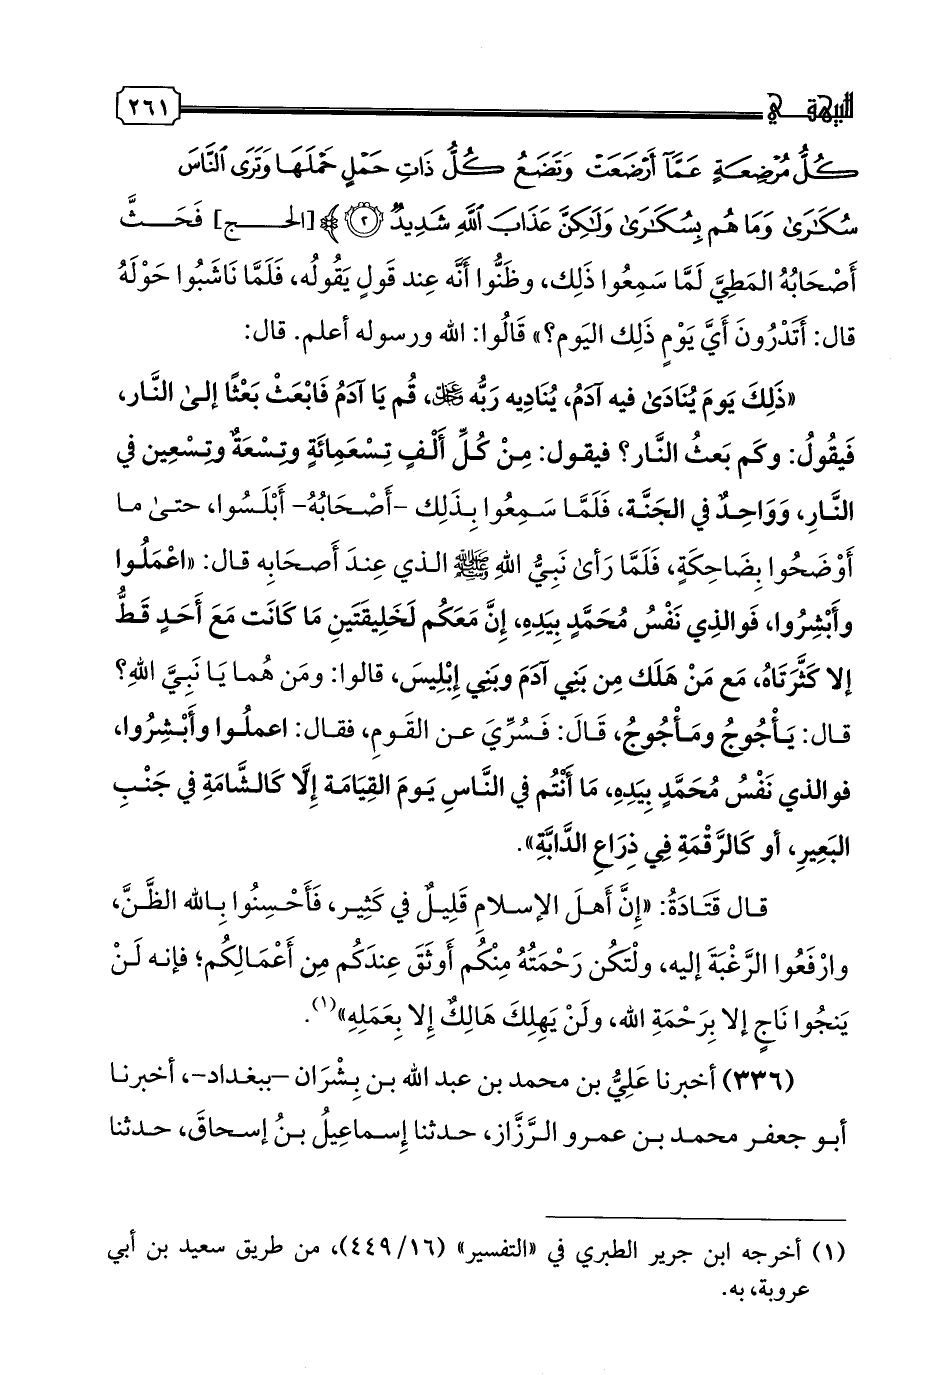 للبيهقي ٢٦١
كُلُّ مُرْضِعَةٍ عَمَّآ أَرْضَعَتْ وَتَضَعُ كُلُّ ذَاتِ حَمْلٍ حَمْلَهَا وَتَرَى ٱلنَّاسَ
سُكَٰرَىٰ وَمَا هُم بِسُكَٰرَىٰ وَلَٰكِنَّ عَذَابَ ٱللَّهِ شَدِيدٌ ۝٢﴾ [الحج] فَحَثَّ
أَصْحَابُهُ المَطِيَّ لَمَّا سَمِعُوا ذَلِك، وظَنُّوا أنَّه عِند قَولٍ يَقُولُه، فَلَمَّا نَاشَبُوا حَوْلَهُ
قال: أَتَدْرُونَ أَيَّ يَوْمٍ ذَلِك اليَوم؟» قَالُوا: الله ورسوله أعلم. قال:
«ذَلِكَ يَومَ يُنَادَىٰ فيه آدَمُ، يُنَادِيه رَبُّه ﷻ، قُم يَا آدَمُ فَابْعَثْ بَعْثًا إلىٰ النَّار،
فَيقُولُ: وكَم بَعثُ النَّار؟ فيقول: مِنْ كُلِّ أَلْفٍ تِسْعَمِائَةٍ وتِسْعَةٌ وتِسْعِين في
النَّارِ، وَوَاحِدٌ في الجَنَّة، فَلَمَّا سَمِعُوا بِذَلِك -أَصْحَابُهُ- أَبْلَسُوا، حتىٰ ما
أَوْضَحُوا بِضَاحِكَةٍ، فَلَمَّا رَأىٰ نَبِيُّ اللهِ ﷺ الذي عِندَ أَصحابِه قال: «اعْمَلُوا
وأَبْشِرُوا، فَوالذِي نَفْسُ مُحَمَّدٍ بِيَدِهِ، إنَّ مَعَكُم لَخَلِيقَتَينِ مَا كَانَت مَعَ أَحَدٍ قَطُّ
إلا كَثَّرَتَاهُ، مَع مَنْ هَلَك مِن بَنِي آدَمَ وبَنِي إِبْلِيسَ، قالوا: ومَن هُما يَا نَبِيَّ اللهِ؟
قال: يَأْجُوجُ ومَأْجُوجُ، قَالَ: فَسُرِّيَ عن القَومِ، فقال: اعملُوا وأَبْشِرُوا،
فوالذي نَفْسُ مُحَمَّدٍ بِيَدِهِ، مَا أَنْتُم في النَّاسِ يَومَ القِيَامَة إلَّا كَالشَّامَةِ في جَنْبِ
البَعِيرِ، أو كَالرَّقْمَةِ فِي ذِرَاعِ الدَّابَّةِ».
قال قَتَادَةُ: «إنَّ أهلَ الإسلامِ قَلِيلٌ في كَثِير، فَأَحْسِنُوا بِالله الظَّنَّ،
وارْفَعُوا الرَّغْبَةَ إليه، ولْتَكُن رَحْمَتُهُ مِنْكُم أَوثَقَ عِندَكُم مِن أَعْمَالِكُم؛ فإنه لَنْ
يَنجُوا نَاجٍ إلا بِرَحْمَةِ الله، ولَنْ يَهلِكَ هَالِكٌ إلا بِعَمَلِهِ»(١).
(٣٣٦) أخبرنا عَلِيُّ بن محمد بن عبد الله بن بِشْرَان -ببغداد-، أخبرنا
أبو جعفر محمد بن عمرو الرَّزَّاز، حدثنا إِسماعِيلُ بنُ إسحاقَ، حدثنا
(١) أخرجه ابن جرير الطبري في «التفسير» (١٦/ ٤٤٩)، من طريق سعيد بن أبي
عروبة، به.